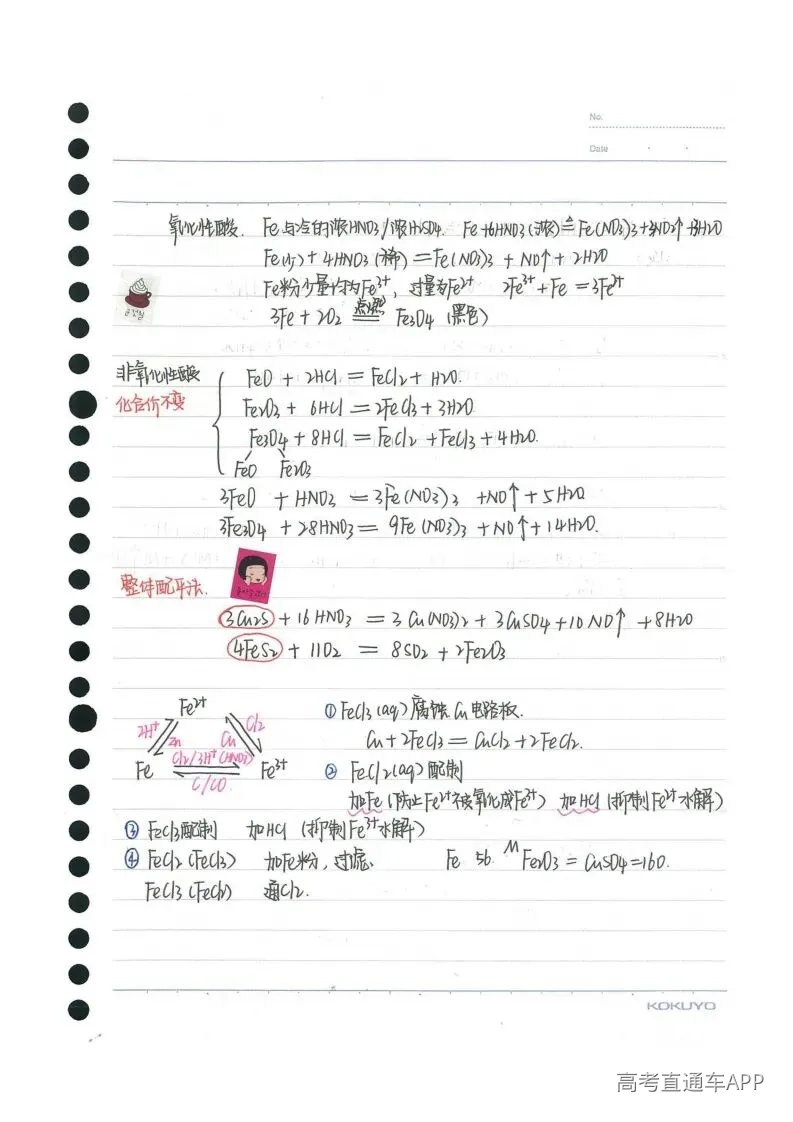 No.
Date
氧化性酸. Fe与冷的浓HNO3/浓H2SO4. Fe+6HNO3(浓)≜Fe(NO3)3+3NO2↑+3H2O
Fe(少)+4HNO3(稀)=Fe(NO3)3+NO↑+2H2O
Fe粉少量均为Fe³⁺, 过量为Fe²⁺ 2Fe³⁺+Fe=3Fe²⁺
3Fe+2O2 点燃 Fe3O4 (黑色)
非氧化性酸 FeO + 2HCl = FeCl2 + H2O.
化合价不变 Fe2O3 + 6HCl = 2FeCl3 + 3H2O
Fe3O4 + 8HCl = FeCl2 + FeCl3 + 4H2O.
FeO Fe2O3
3FeO + HNO3 = 3Fe(NO3)3 + NO↑ + 5H2O
3Fe3O4 + 28HNO3 = 9Fe(NO3)3 + NO↑ + 14H2O.
整体配平法.
3Cu2S + 16HNO3 = 3Cu(NO3)2 + 3CuSO4 + 10NO↑ + 8H2O
4FeS2 + 11O2 = 8SO2 + 2Fe2O3
Fe²⁺ ① FeCl3(aq)腐蚀Cu电路板.
2H⁺ Zn Cu Cl2 Cu+2FeCl3=CuCl2+2FeCl2.
Cl2/3H⁺(HNO3)
Fe Fe³⁺ ② FeCl2(aq)配制
C/CO
加Fe(防止Fe²⁺被氧化成Fe³⁺) 加HCl(抑制Fe²⁺水解)
③ FeCl3配制 加HCl(抑制Fe³⁺水解)
④ FeCl2(FeCl3) 加Fe粉, 过滤. Fe 56 M Fe2O3=CuSO4=160.
FeCl3(FeCl2) 通Cl2.
KOKUYO
高考直通车APP